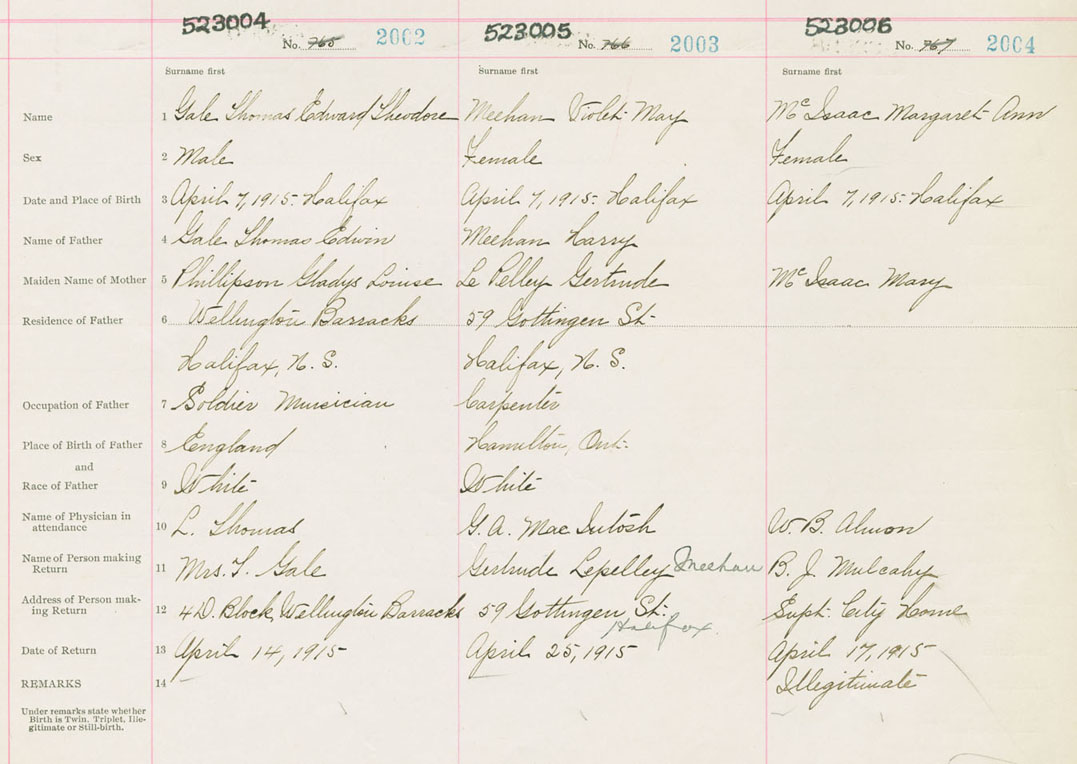 523004 523005 523006
No. 765 2002 No. 766 2003 No. 767 2004
Surname first Surname first Surname first
Name 1 Gale Thomas Edward Theodore Meehan Violet May McIsaac Margaret Ann
Sex 2 Male Female Female
Date and Place of Birth 3 April 7, 1915 - Halifax April 7, 1915 - Halifax April 7, 1915 - Halifax
Name of Father 4 Gale Thomas Edwin Meehan Harry
Maiden Name of Mother 5 Phillipson Gladys Louise Le Pelley Gertrude McIsaac Mary
Residence of Father 6 Wellington Barracks 59 Gottingen St.
Halifax, N. S. Halifax, N. S.
Occupation of Father 7 Soldier Musician Carpenter
Place of Birth of Father 8 England Hamilton, Ont.
and
Race of Father 9 White White
Name of Physician in
attendance 10 L. Thomas G. A. MacIntosh W. B. Almon
Name of Person making
Return 11 Mrs. T. Gale Gertrude Lepelley Meehan B. J. Mulcahy
Address of Person mak-
ing Return 12 4 D. Block, Wellington Barracks 59 Gottingen St. Supt. City Home
Halifax
Date of Return 13 April 14, 1915 April 25, 1915 April 17, 1915
REMARKS 14 Illegitimate
Under remarks state whether
Birth is Twin, Triplet, Ille-
gitimate or Still-birth.